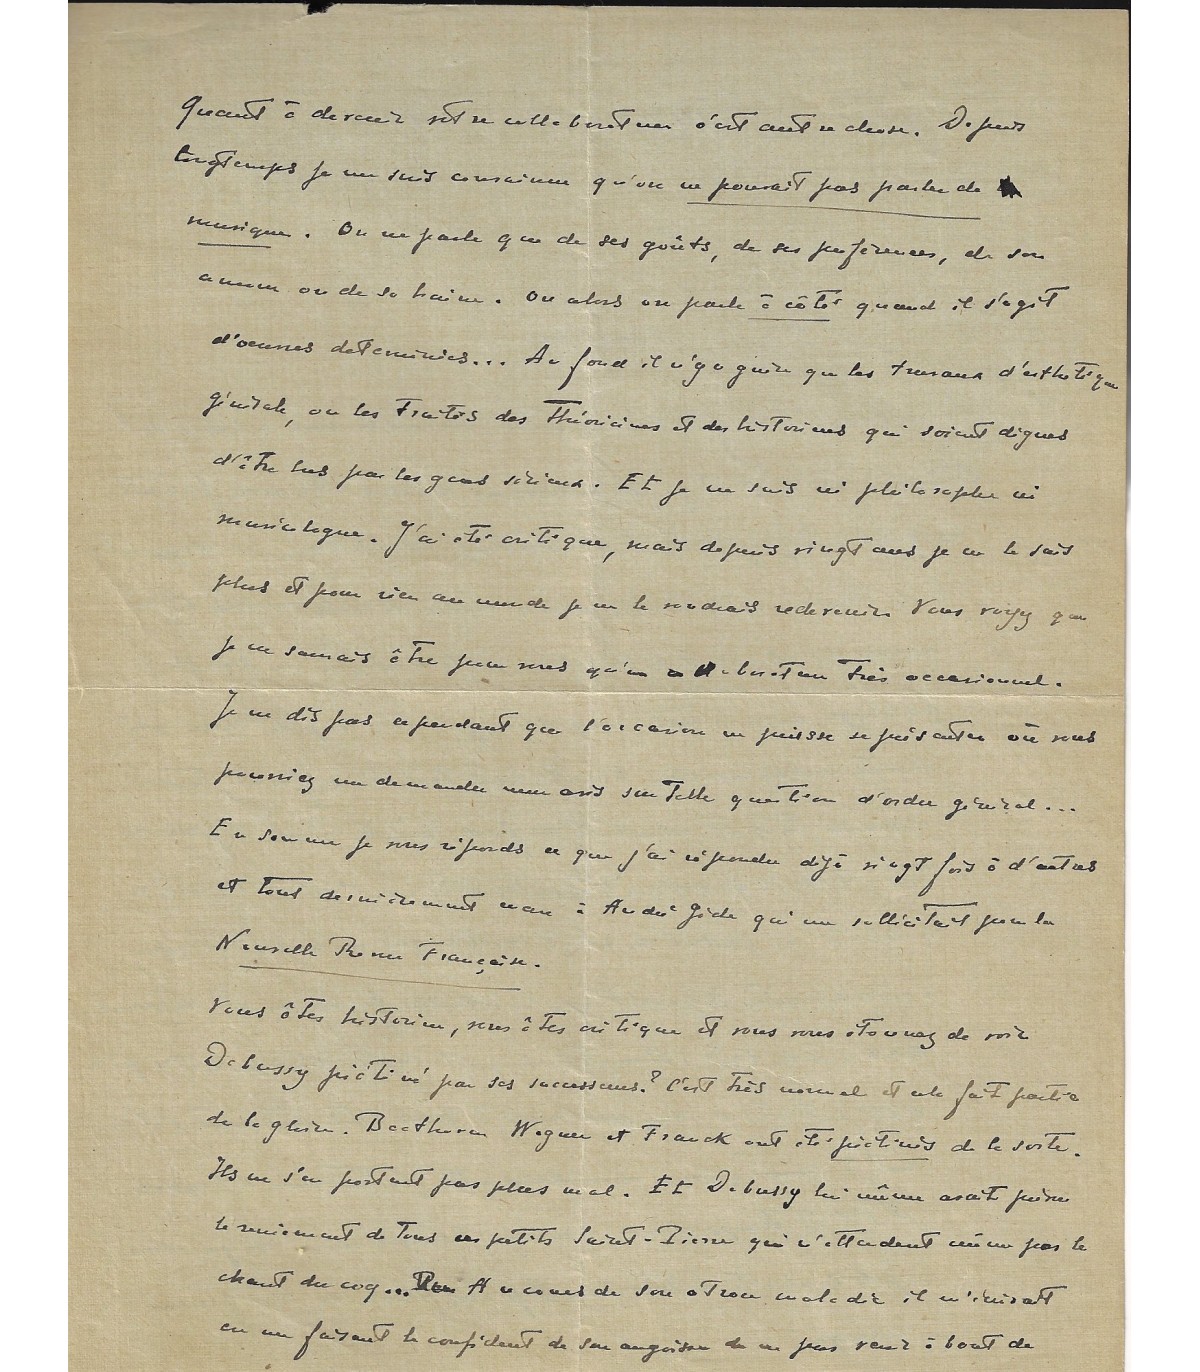 Quant à devenir votre collaborateur c'est autre chose. Depuis
longtemps je me suis convaincu qu'on ne pouvait pas parler de
musique. On ne parle que de ses goûts, de ses préférences, de son
amour ou de sa haine. Ou alors on parle à côté quand il s'agit
d'oeuvres déterminées... Au fond il n'y a guère que les travaux d'esthétique
générale, ou les Traités des Théoriciens et des historiens qui soient dignes
d'être lus par les gens sérieux. Et je ne suis ni philosophe ni
musicologue. J'ai été critique, mais depuis vingt ans je ne le suis
plus et pour rien au monde je ne le voudrais redevenir. Vous voyez que
je ne saurais être pour vous qu'un collaborateur très occasionnel.
Je ne dis pas cependant que l'occasion ne puisse se présenter où vous
pourriez me demander mon avis sur telle question d'ordre général...
En somme je vous réponds ce que j'ai répondu déjà vingt fois à d'autres
et tout dernièrement encore à André Gide qui me sollicitait pour la
Nouvelle Revue Française.
Vous êtes historien, vous êtes critique et vous vous étonnez de voir
Debussy piétiné par ses successeurs? C'est très normal et cela fait partie
de la gloire. Beethoven Wagner et Franck ont été piétinés de la sorte.
Ils ne s'en portent pas plus mal. Et Debussy lui même avait prévu
le reniement de tous ces petits Saint-Pierre qui n'attendent même pas le
chant du coq... Au cours de son atroce maladie il m'écrivait
en me faisant le confident de son angoisse de ne pas venir à bout de